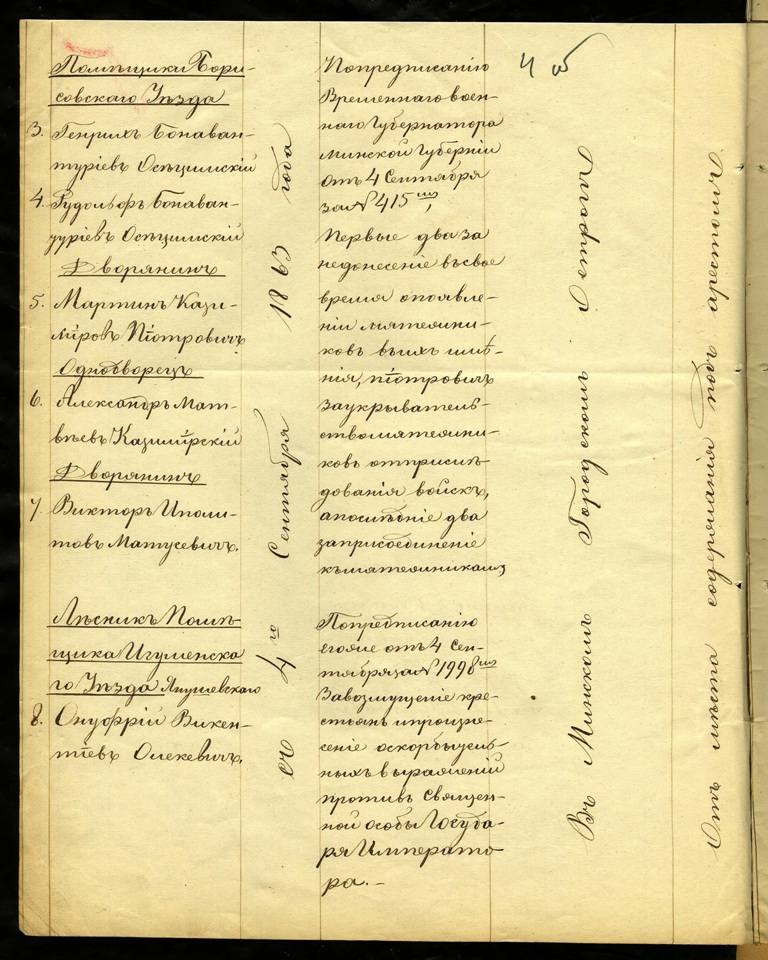 Помѣщики Бори-
совскаго Уѣзда
3. Генрихъ Бонаван-
туріевъ Осѣцимскій
4. Рудольфъ Бонаван-
туріевъ Осѣцимскій
Дворянинъ
5. Мартинъ Кази-
міровъ Піотровичъ
Однодворецъ
6. Александръ Мат-
вѣевъ Казимірскій
Дворянинъ
7. Викторъ Иполи-
товъ Матусевичъ.
Лѣсникъ Помѣ-
щика Игуменска
го Уѣзда Янушевскаго
8. Онуфрій Викен-
тіевъ Олекевичъ.
съ 4го Сентября 1863 года
По предписанію
Временнаго воен-
наго Губернатора
Минской Губерніи
отъ 4 Сентября
за № 415
Первые два за
недонесеніе въ свое
время о появле-
ніи мятежни-
ковъ въ ихъ имѣ-
нія, Піотровичъ
за укрыватель-
ство мятежни-
ковъ отъ преслѣ-
дованія войскъ,
а послѣдніе два
за присоединеніе
къ мятежникамъ
По предписанію
егоже отъ 4 Сен-
тября за № 1998
За возмущеніе кре-
стьянъ и произне-
сеніе оскорбитель-
ныхъ выраженій
противъ Священ-
ной особы Госуда-
ря Императо-
ра. -
4 об
Въ Минскомъ Городскомъ Острогѣ
Отъ мѣста содержанія подъ арестомъ